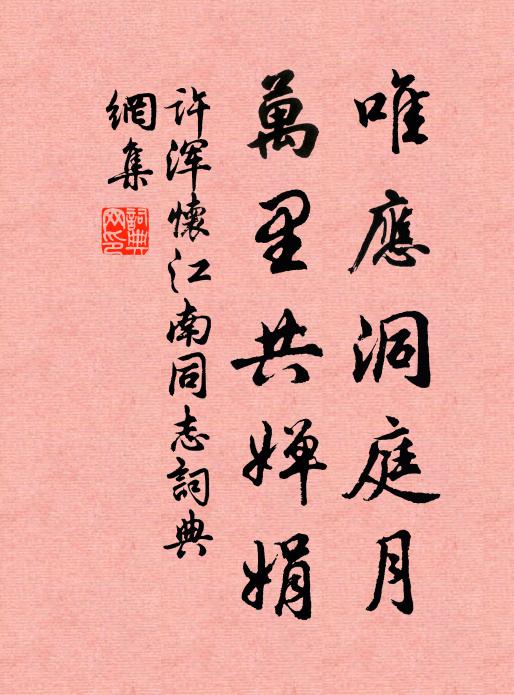 唯應洞庭月
萬里共嬋娟
許渾懷江南同志詞典
網集
詞典
网印